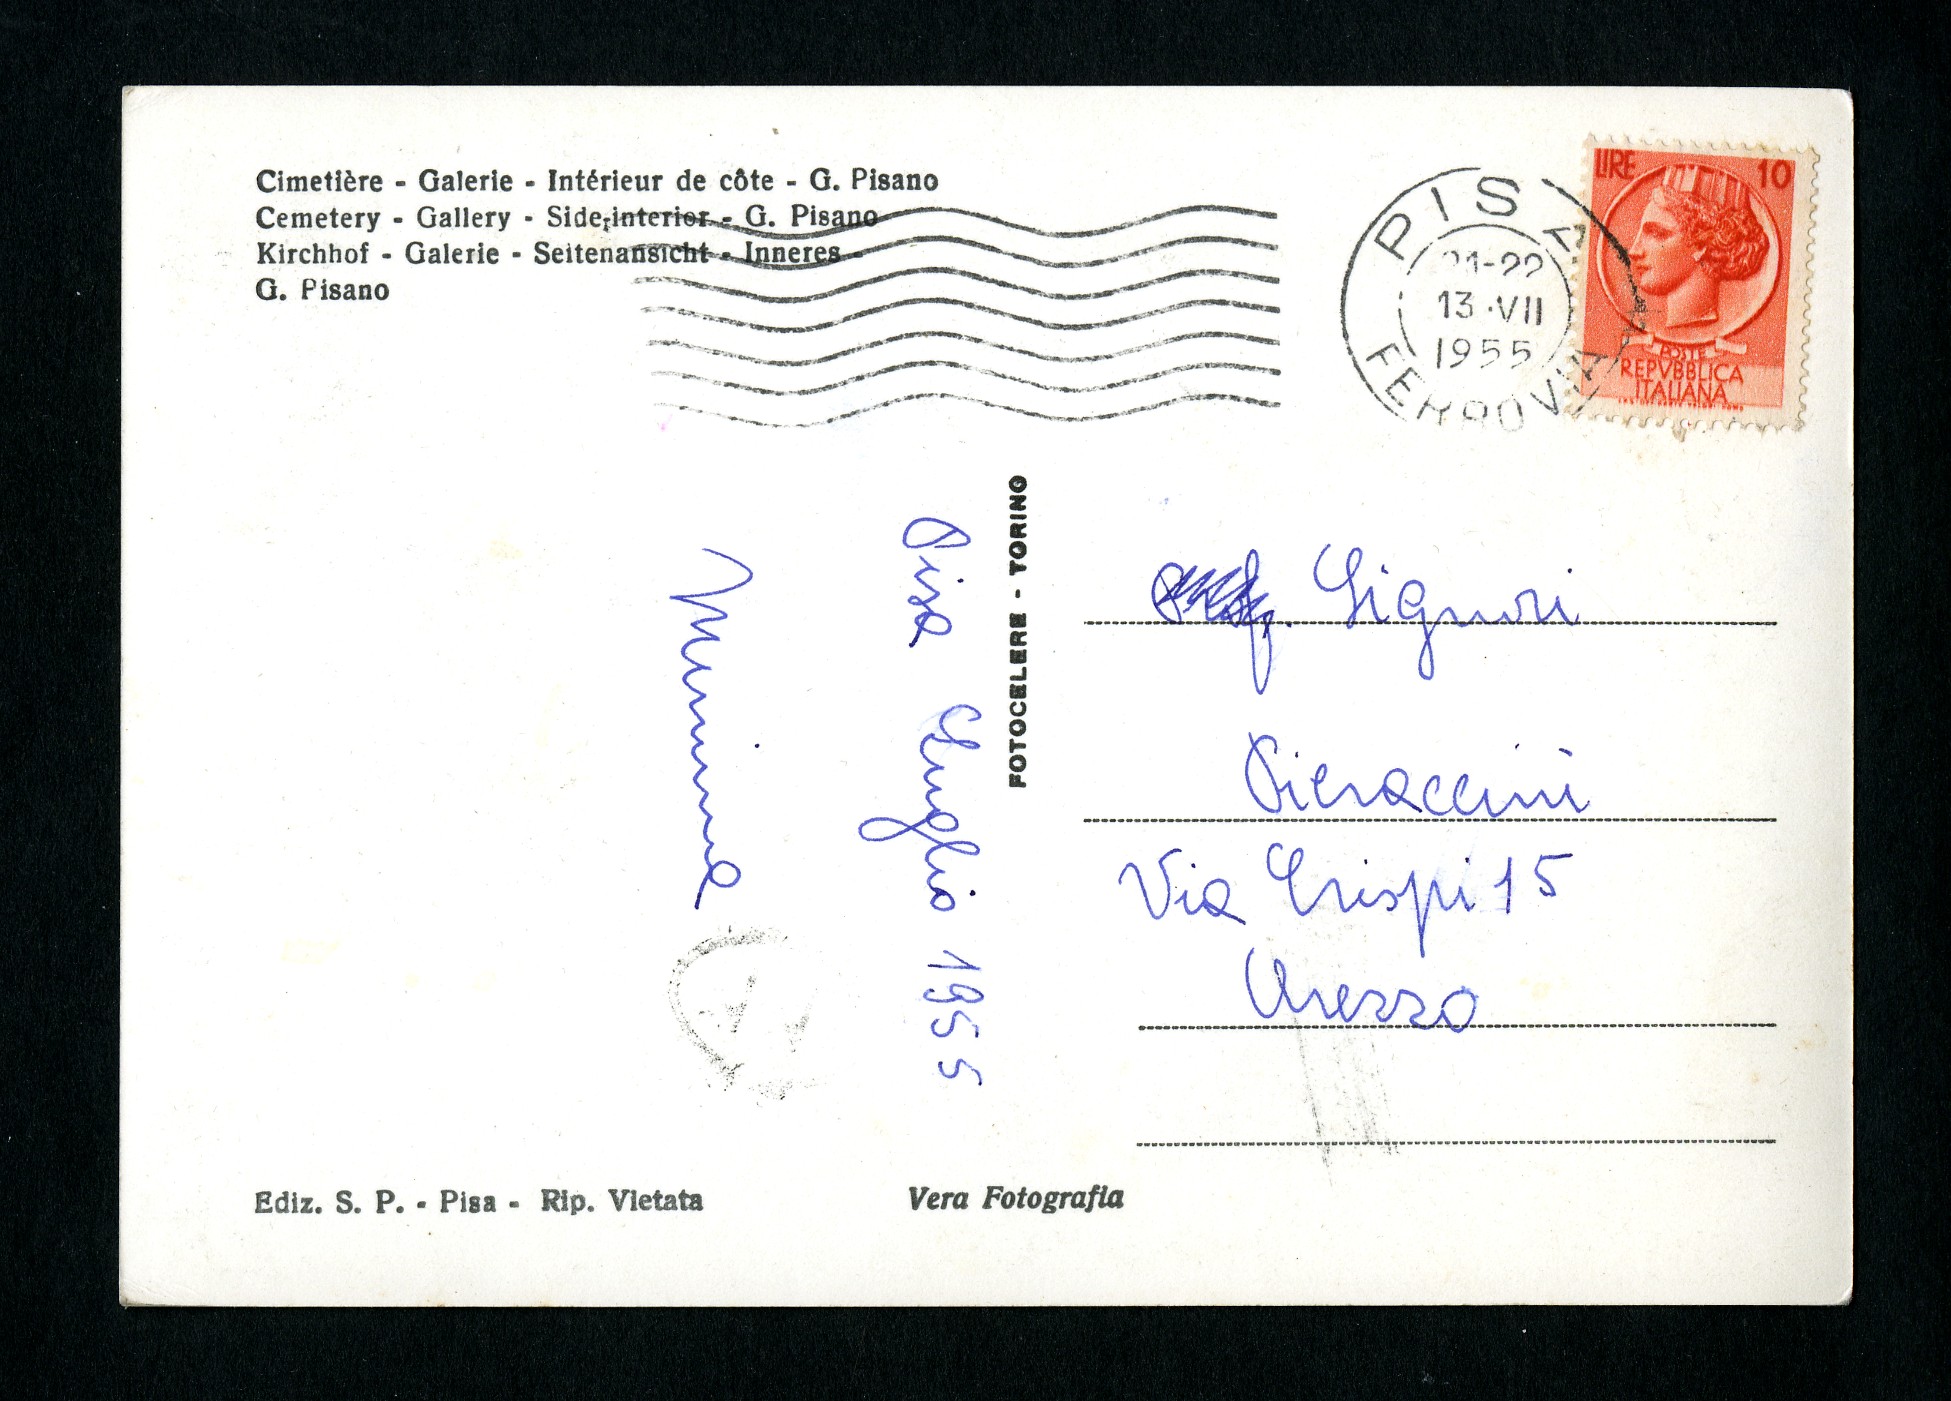 Cimetière - Galerie - Intérieur de côte - G. Pisano
Cemetery - Gallery - Side-interior - G. Pisano
Kirchhof - Galerie - Seitenansicht - Inneres -
G. Pisano
PISA
21-22
13·VII
1955
FERROVIA
LIRE 10
POSTE
REPVBBLICA
ITALIANA
Pisa Luglio 1955
FOTOCELERE - TORINO
Signori
Pieraccini
Via Crispi 15
Arezzo
Ediz. S. P. - Pisa - Rip. Vietata
Vera Fotografia